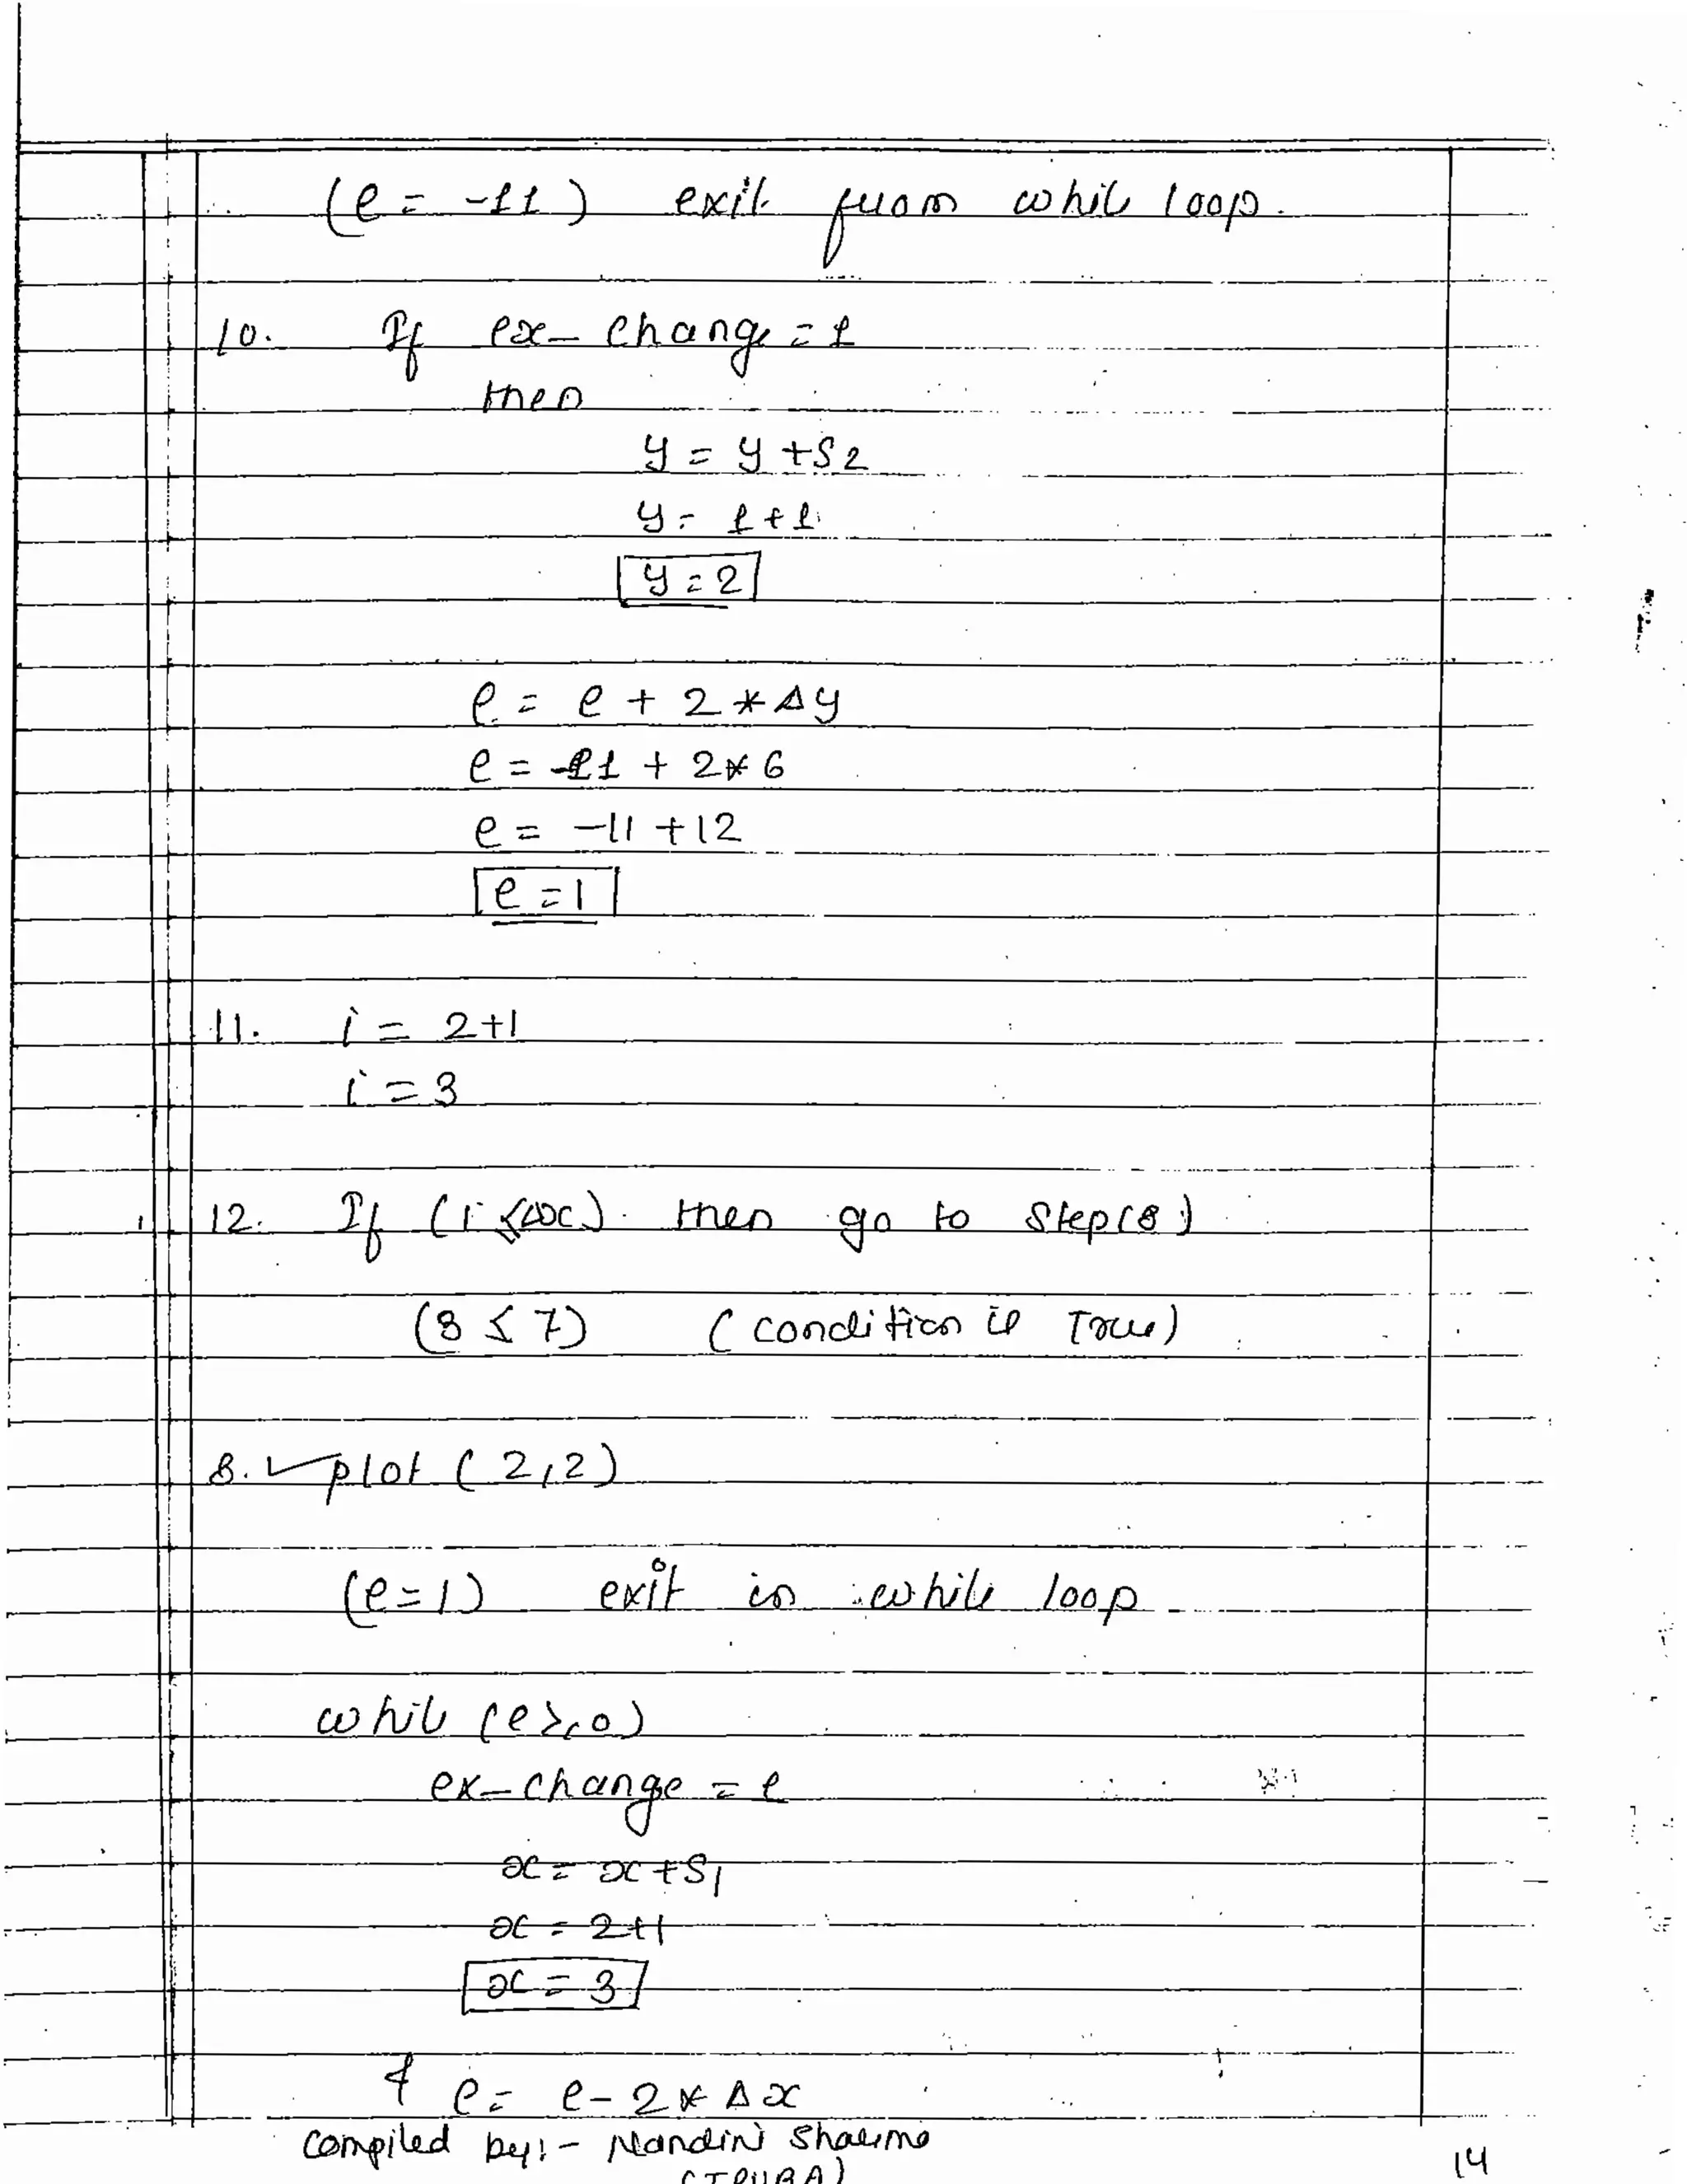 (e = -11) exit from while loop.
10. If ex-change = 1
then
y = y + S2
y = 1 + 1
y = 2
e = e + 2 * Δy
e = -11 + 2 * 6
e = -11 + 12
e = 1
11. i = 2+1
i = 3
12. If (i ≤ Δx) then go to Step(8)
(3 ≤ 7) (condition is True)
8. ✓ plot (2,2)
(e = 1) exit in while loop
while (e ≥ 0)
ex-change = 1
x = x + S1
x = 2+1
x = 3
& e = e - 2 * Δx
Compiled by:- Nandini Sharma
14